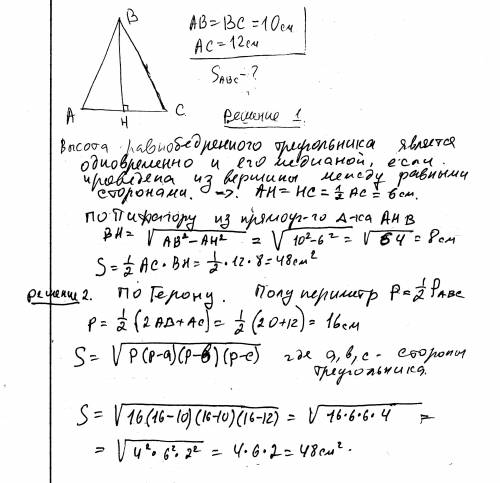 B
AB = BC = 10см
AC = 12см
S_ABC - ?
A H C
Решение 1.
Высота равнобедренного треугольника является
одновременно и его медианой, если
проведена из вершины между равными
сторонами. → AH = HC = 1/2 AC = 6см.
По Пифагору из прямоуг-го Δ-ка AHB
BH = √(AB² - AH²) = √(10² - 6²) = √64 = 8см
S = 1/2 AC · BH = 1/2 · 12 · 8 = 48см²
Решение 2. По Герону. Полупериметр P = 1/2 P_ABC
P = 1/2 (2AB + AC) = 1/2 (20 + 12) = 16см
S = √(P(P-a)(P-b)(P-c)) где a, b, c - стороны
треугольника.
S = √(16(16-10)(16-10)(16-12)) = √(16·6·6·4) =
= √(4²·6²·2²) = 4·6·2 = 48см².